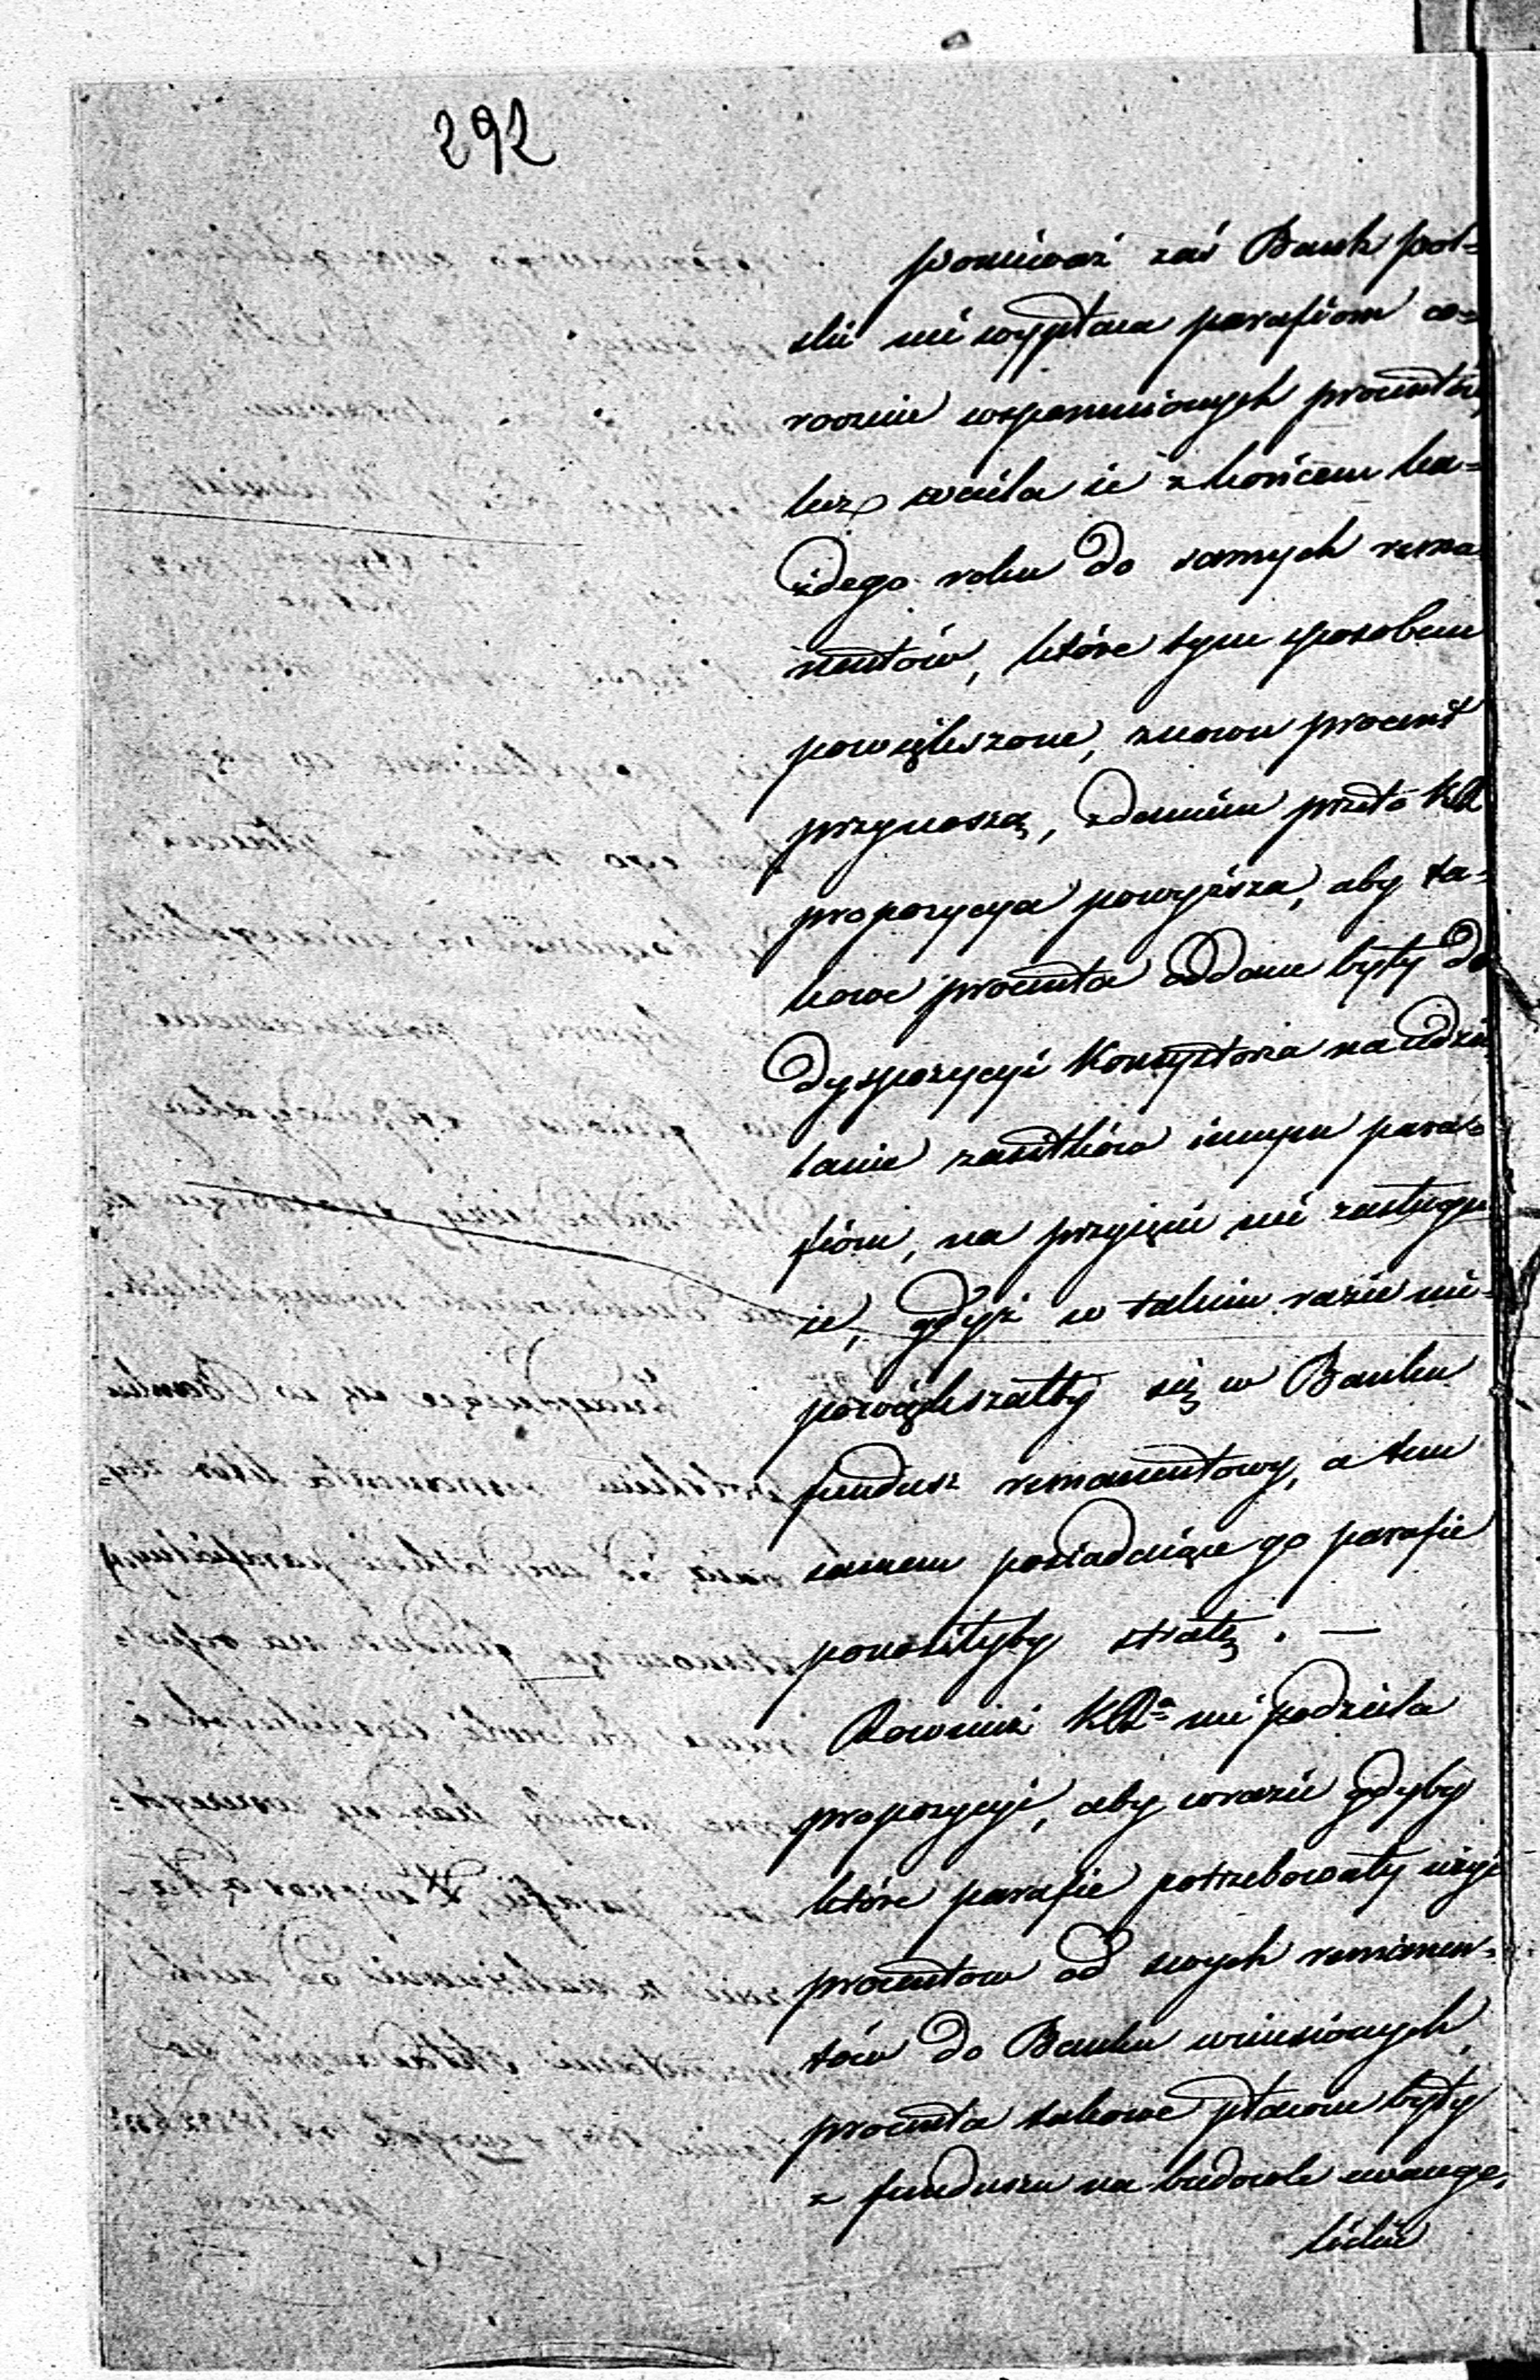 292
ponieważ zaś Bank pol-
ski nie wypłaca parafiom co-
rocznie wspomnionych procentów,
lecz wciela ie z końcem ka-
żdego roku do samych rema
nentów, które tym sposobem
powiększone, znowu procent
przynoszą, zdaniem przeto KR
propozycya powyższa, aby ta-
kowe procenta oddane były do
dyspozycyi Konsystorza na udzie
lanie zasiłków innym para-
fiom, na przyięcie nie zasługu
ie, gdyż w takim razie nie-
powiększałby się w Banku
fundusz remanentowy, a tem
samem posiadaiące go parafie
ponosiłyby stratę. —
Rownież KRa nie podziela
propozycyi, aby wrazie gdyby
które parafie potrzebowały użyć
procentow od swych remanen-
tów do Banku wniesionych,
procenta takowe płacone były
z funduszu na budowle ewange-
lickie